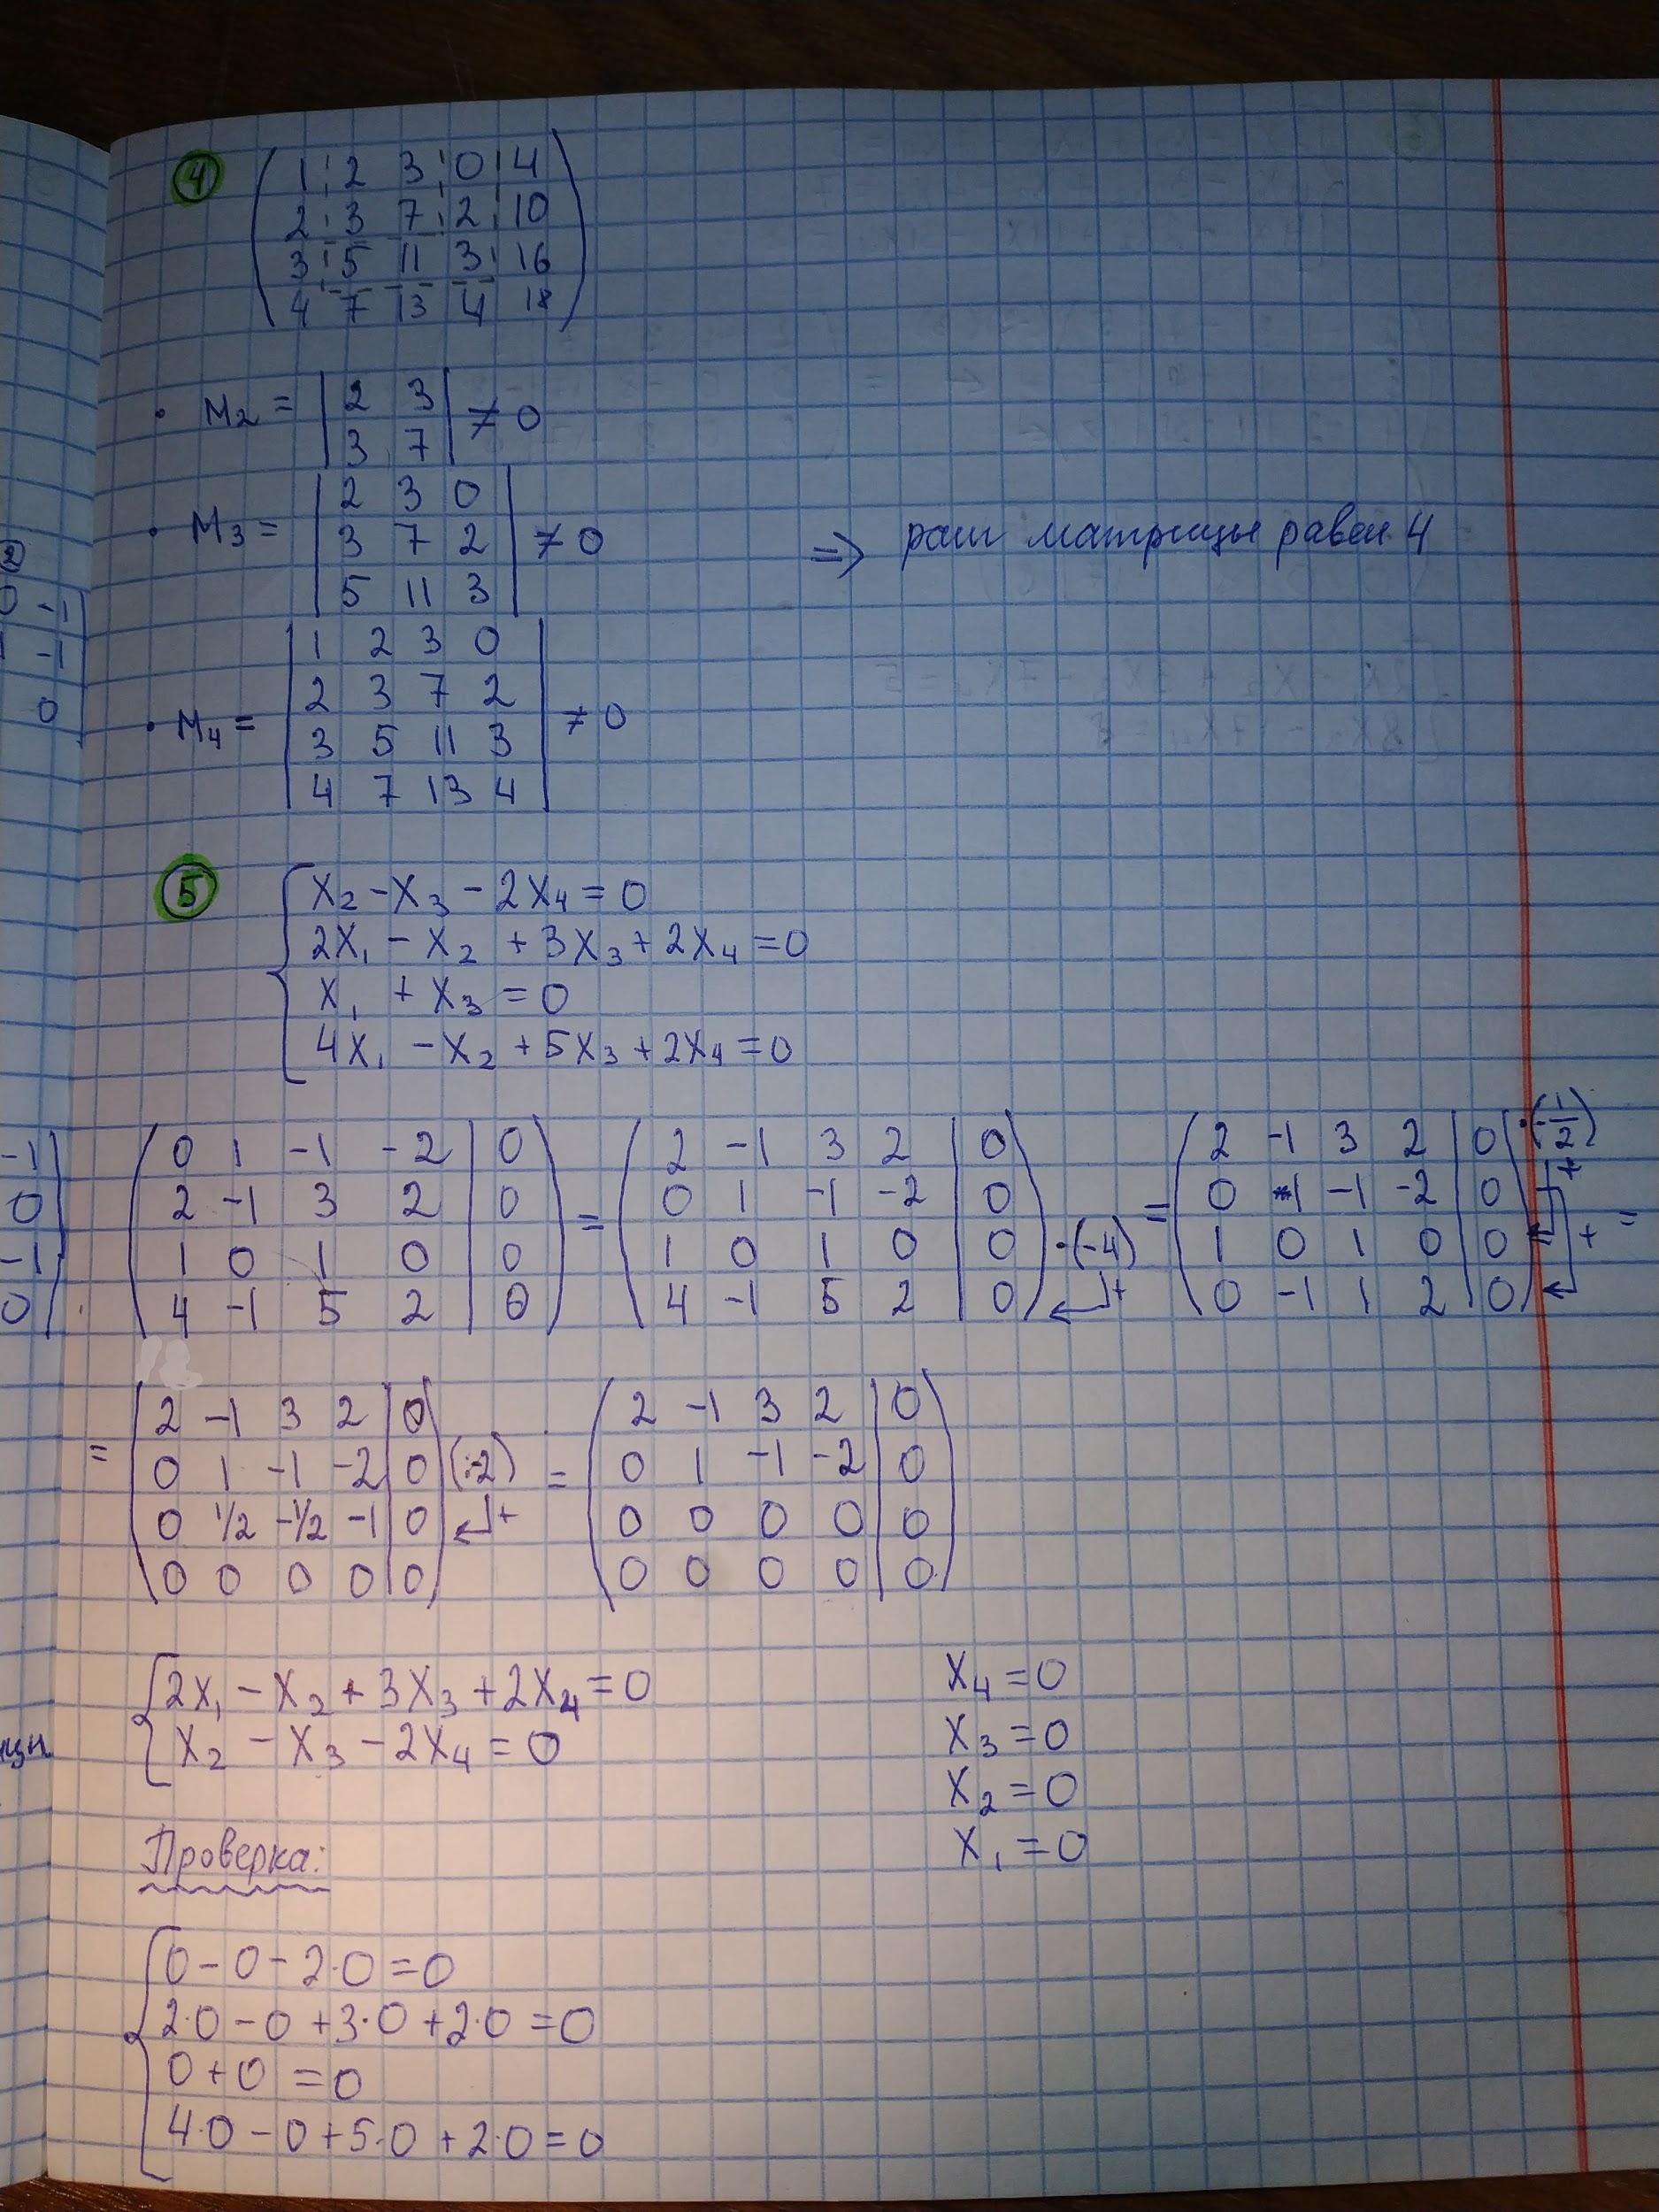 4
1 2 3 0 4
2 3 7 2 10
3 5 11 3 16
4 7 13 4 18
• M₂ = | 2 3 | ≠ 0
| 3 7 |
• M₃ = | 2 3 0 | ≠ 0
| 3 7 2 |
| 5 11 3 |
⇒ ранг матрицы равен 4
• M₄ = | 1 2 3 0 | ≠ 0
| 2 3 7 2 |
| 3 5 11 3 |
| 4 7 13 4 |
5
x₂ - x₃ - 2x₄ = 0
2x₁ - x₂ + 3x₃ + 2x₄ = 0
x₁ + x₃ = 0
4x₁ - x₂ + 5x₃ + 2x₄ = 0
( 0 1 -1 -2 | 0 ) = ( 2 -1 3 2 | 0 ) = ( 2 -1 3 2 | 0 ) ·(-1/2)
( 2 -1 3 2 | 0 ) ( 0 1 -1 -2 | 0 ) ( 0 1 -1 -2 | 0 ) +
( 1 0 1 0 | 0 ) ( 1 0 1 0 | 0 ) ·(-4) ( 1 0 1 0 | 0 ) + =
( 4 -1 5 2 | 0 ) ( 4 -1 5 2 | 0 ) + ( 0 -1 1 2 | 0 )
= ( 2 -1 3 2 | 0 ) = ( 2 -1 3 2 | 0 )
( 0 1 -1 -2 | 0 ) (:-2) ( 0 1 -1 -2 | 0 )
( 0 1/2 -1/2 -1 | 0 ) + ( 0 0 0 0 | 0 )
( 0 0 0 0 | 0 ) ( 0 0 0 0 | 0 )
2x₁ - x₂ + 3x₃ + 2x₄ = 0
x₂ - x₃ - 2x₄ = 0
x₄ = 0
x₃ = 0
x₂ = 0
x₁ = 0
Проверка:
0 - 0 - 2·0 = 0
2·0 - 0 + 3·0 + 2·0 = 0
0 + 0 = 0
4·0 - 0 + 5·0 + 2·0 = 0